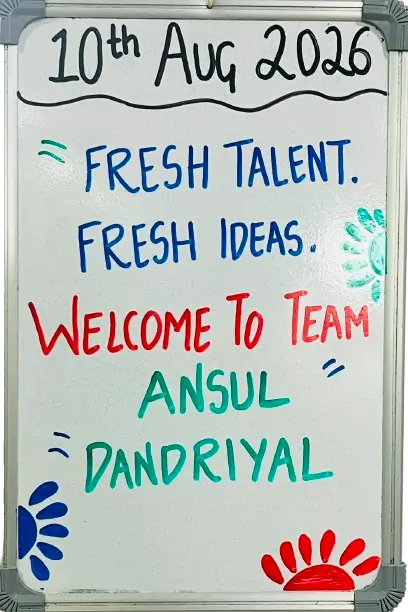 10th Aug 2026
FRESH TALENT.
FRESH IDEAS.
WELCOME TO TEAM
ANSUL
DANDRIYAL